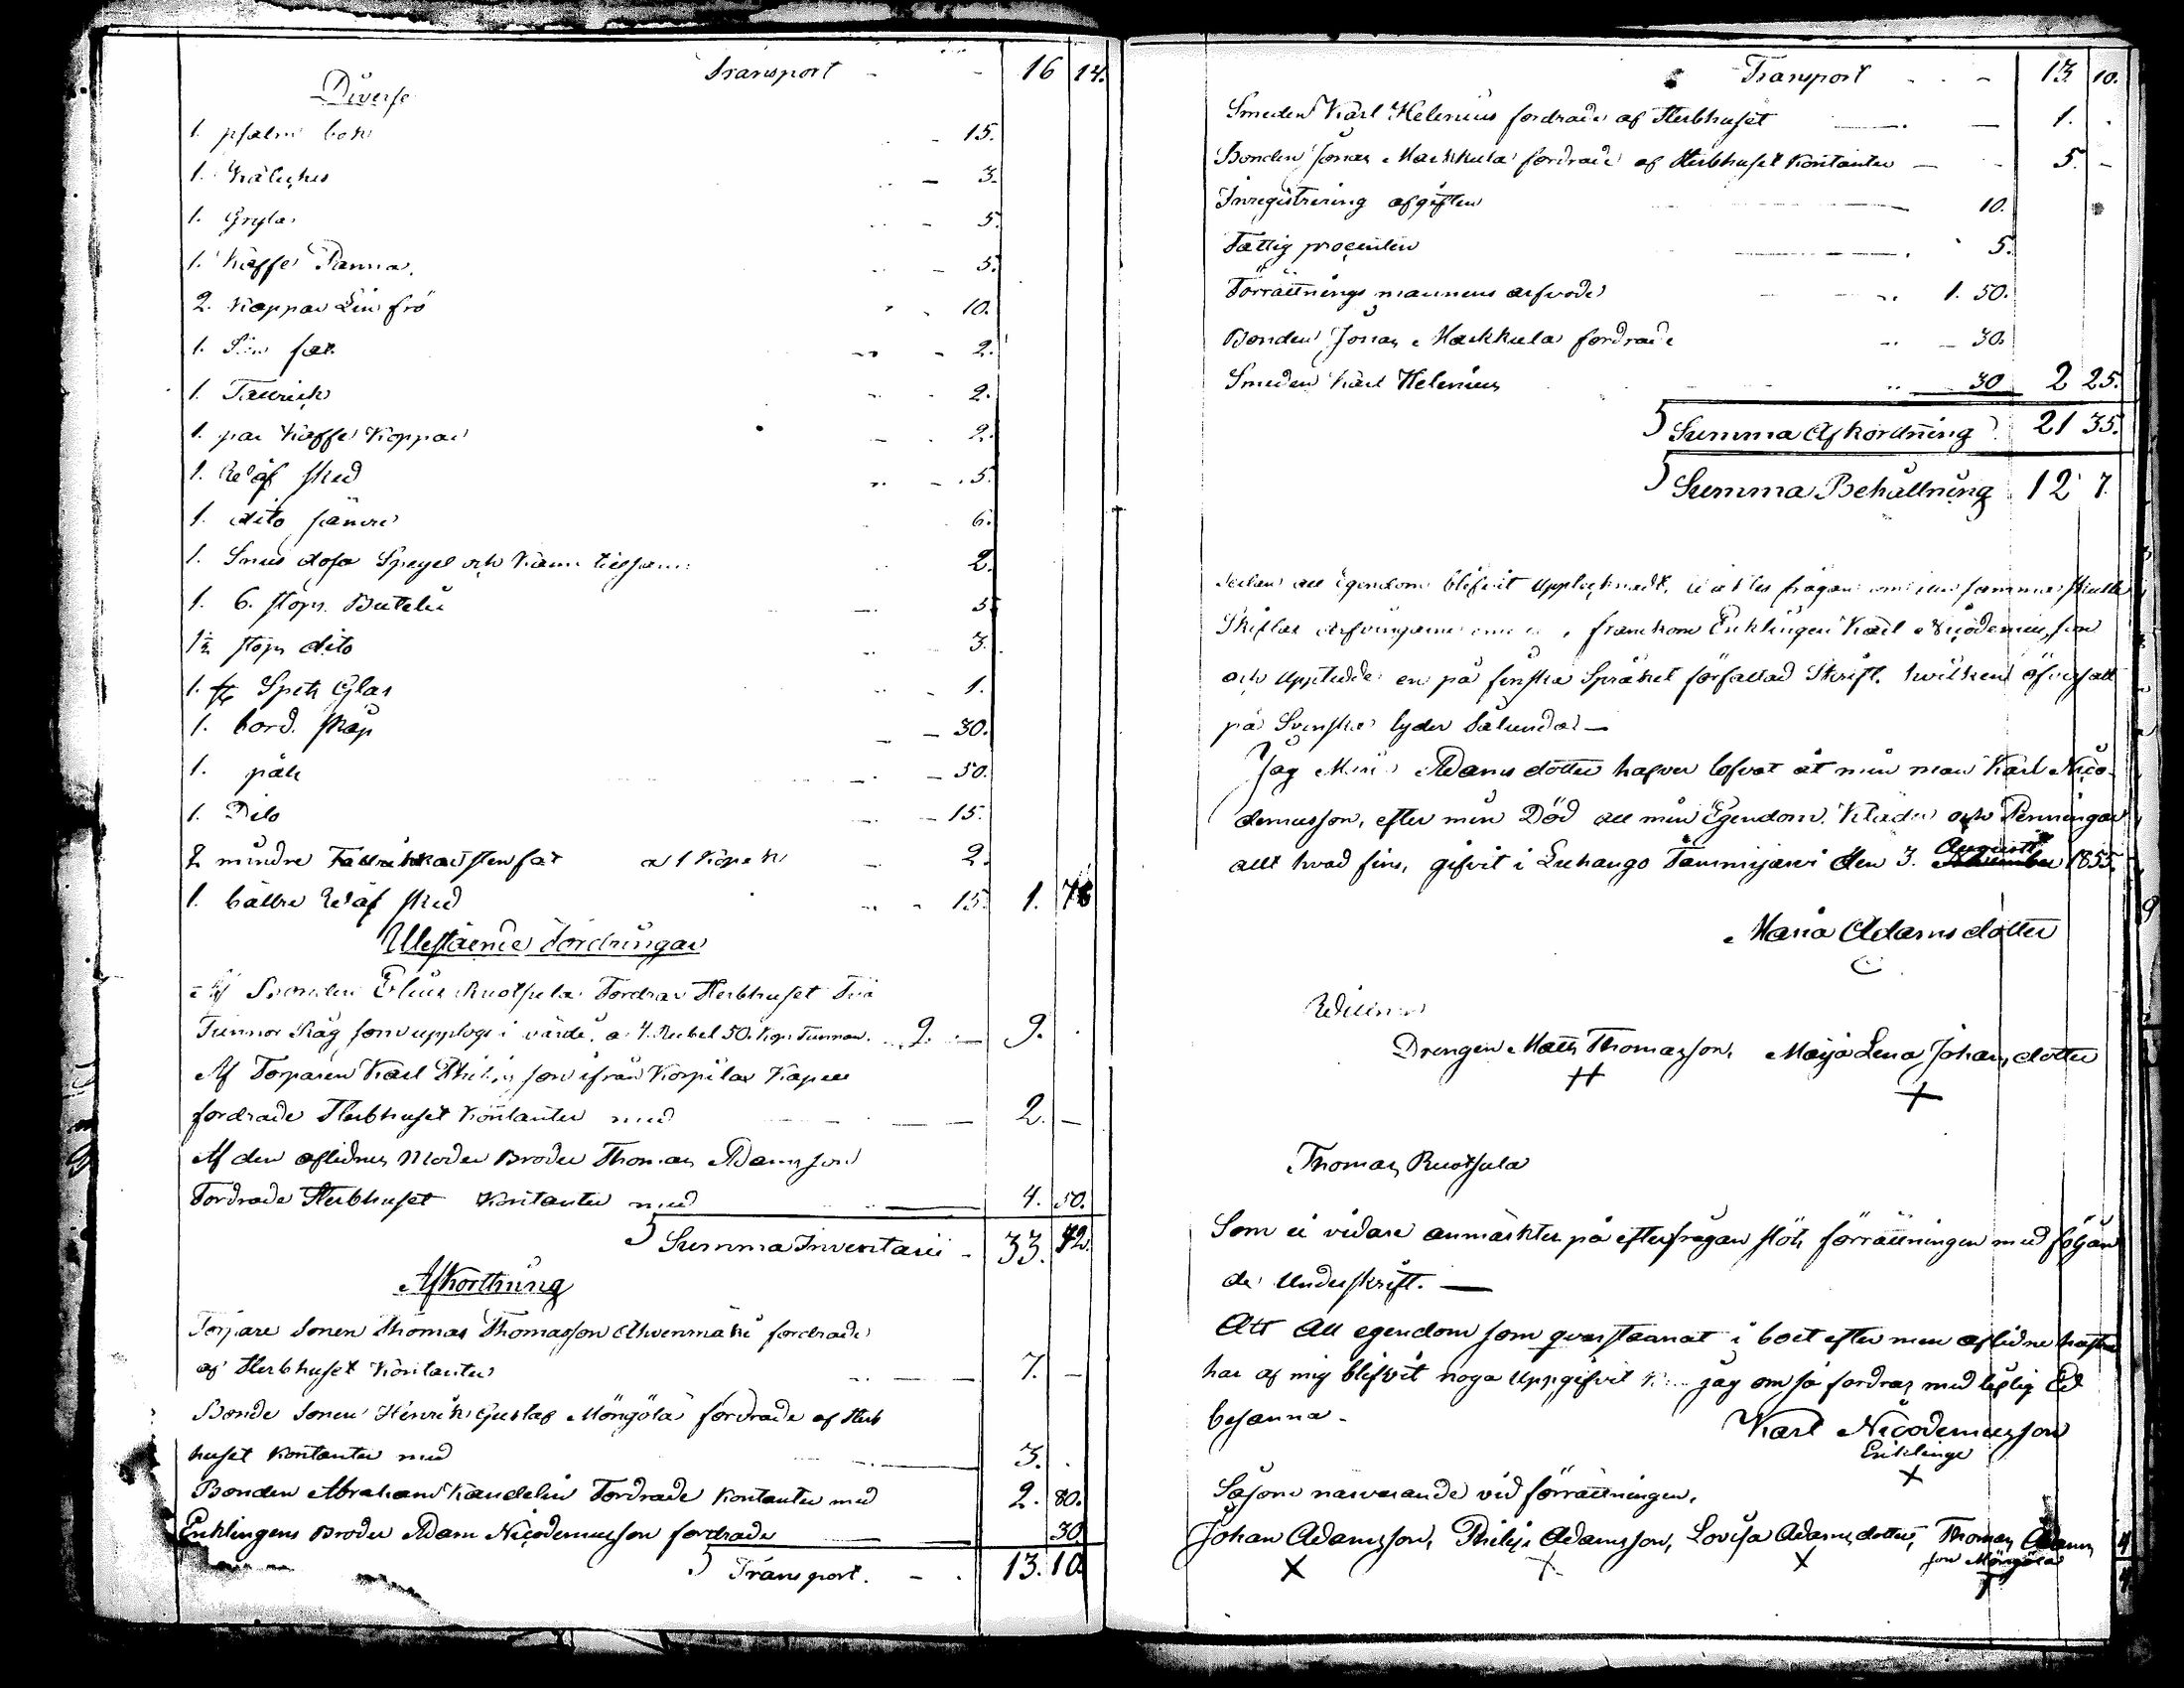 Transport - - 16 14.
Diverse
1. psalm bok - 15.
1. - 3.
1. Gryta - 5.
1. Kaffe Panna. - 5.
2. Kappar Lin frö - 10.
1. fat - 2.
1. Tallrick - 2.
1. par Kaffe Koppar - 2.
1. sked - 5.
1. dito sämre 6.
1. Snus dosa Spegel och Kam tilsam 2.
1. 6. stops Butelie - 5
1½ stops dito - 3.
1. Spets Glas - 1.
1. bord. skåp - 30.
1. påk - 50.
1. Dito - 15.
2 mindre stenfat a 1 Kopek - 2.
1. bättre sked - 15. 1. 78
Utestående Fordringar
Af Bonden Elias Ruotsala Fordrar Sterbhuset Två
Tunnor Råg som upptogs i värde a 4. Rubel 50. Kop. Tunnan. 9. — 9. .
Af Torparen Karl son ifrån Korpilax Kapell
fordrade Sterbhuset Kontanter med — 2. —
Af den aflidnes Moder Broder Thomas Adamsson
Fordrade Sterbhuset Kontanter med — 4. 50.
Summa Inventarii - 33. 42.
Afkorthning
Torpare Sonen Thomas Thomasson Ahvenmäki fordrade
af Sterbhuset Kontanter — 7. —
Bonde Sonen Henrik Gustaf Möngölä fordrade af Sterb
huset Kontanter med — 3. .
Bonden Abraham Kandelin Fordrade Kontanter med 2. 80.
Enklingens Broder Adam Nicodemusson fordrade — 30.
Transport. - . 13. 10.
Transport - - - 13. 10.
Smeden Karl Helenius fordrade af Sterbhuset — 1. .
Bonden Jonas Markkula fordrade af Sterbhuset Kontanter — 5. -
Inregistrering afgiften — 10.
Fattig procenten — 5.
Förrättnings mannens arfvode 1. 50.
Bonden Jonas Markkula fordrade - 30.
Smeden Karl Helenius 30 2 25.
Summa Afkordning 21 35.
Summa Behållning 12 7.
Sedan all Egendom blifvit upptecknadt, frågan om samma skulle
Skiftas Arfvingarne , framkom Enklingen Karl Nicodemusson
och upptedde en på finska Språket författad Skrift. hvilken öfversatt
på Svenska lyder Salunda —
Jag Maria Adams dotter hafver lofvat åt min man Karl Nico-
demusson, efter min Död all min Egendom. Kläder och Penningar
allt hvad fins, gifvit i Luhango Tammijärvi den 3. Augusti 1855.
Maria Adams dotter
Drengen Matts Thomasson, Maija Lena Johans dotter
Thomas Ruotsala
Som ei vidare anmärktes på efterfrågan slöts förrättningen med följan
de Underskrift. —
Att All egendom som qvarstaanat i boet efter min aflidne hustru
har af mig blifvit noga Uppgifvit jag om så fordras med liflig Ed
besanna.
Karl Nicodemusson
Enklinge
Såsom närvarande vid förrättningen.
Johan Adamsson, Philip Adamsson, Lovisa Adams dotter, Thomas Adams
son Möngölä